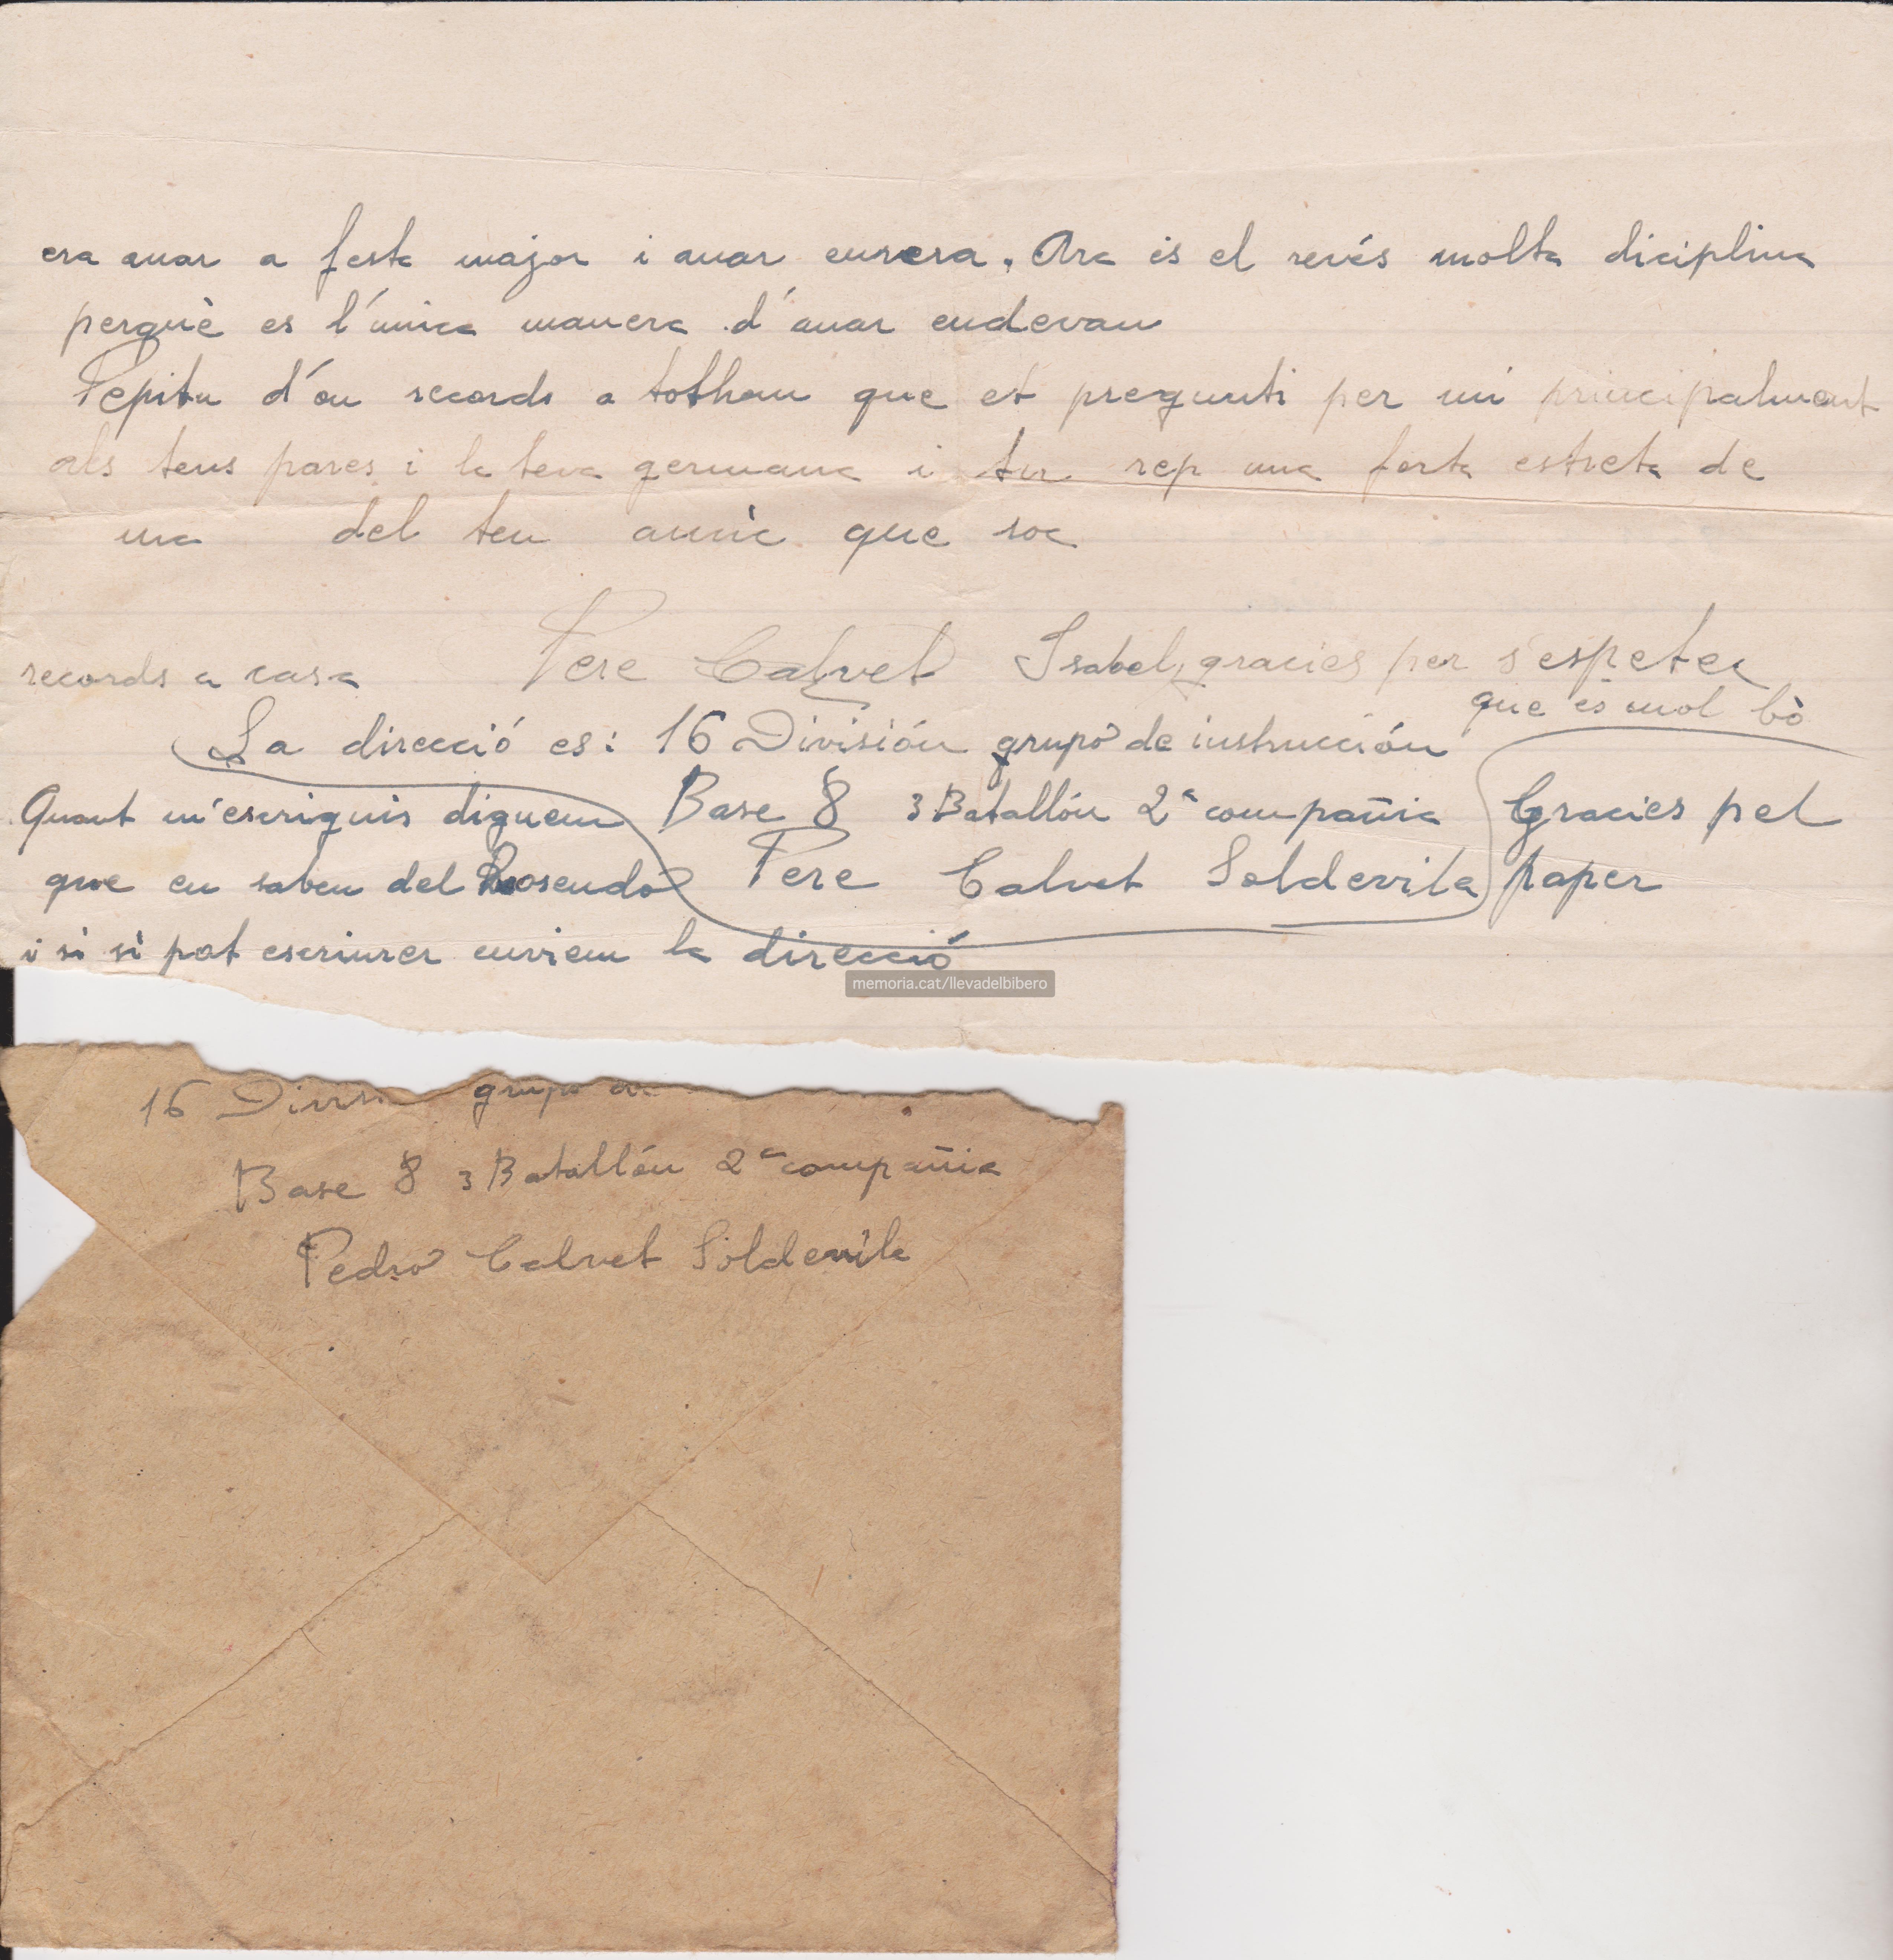 era anar a festa major i anar enrera. Ara és el revés molta diciplina
perquè es l'unica manera d'anar endevan
Pepitu d'ou records a tothom que et pregunti per mi principalment
als teus pares i la teva germana i tu rep una forta estreta de
ma del teu amic que soc
records a casa Pere Calvet
Isabel, gracies per s'espetec
que és mol bò
La direcció es: 16 División grupo de instrucción
Base 8 3 Batallón 2ª compañia
Pere Calvet Soldevila
Gracies pel
paper
Quant m'escriguis diguem
que en sabeu del Rosendo
i si si pot escriurer enviem la direcció
memoria.cat/llevadelbibero
16 Division grupo de
Base 8 3 Batallón 2ª compañia
Pedro Calvet Soldevila